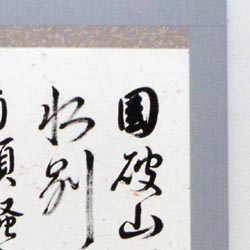 國破山
恨別
頭搔